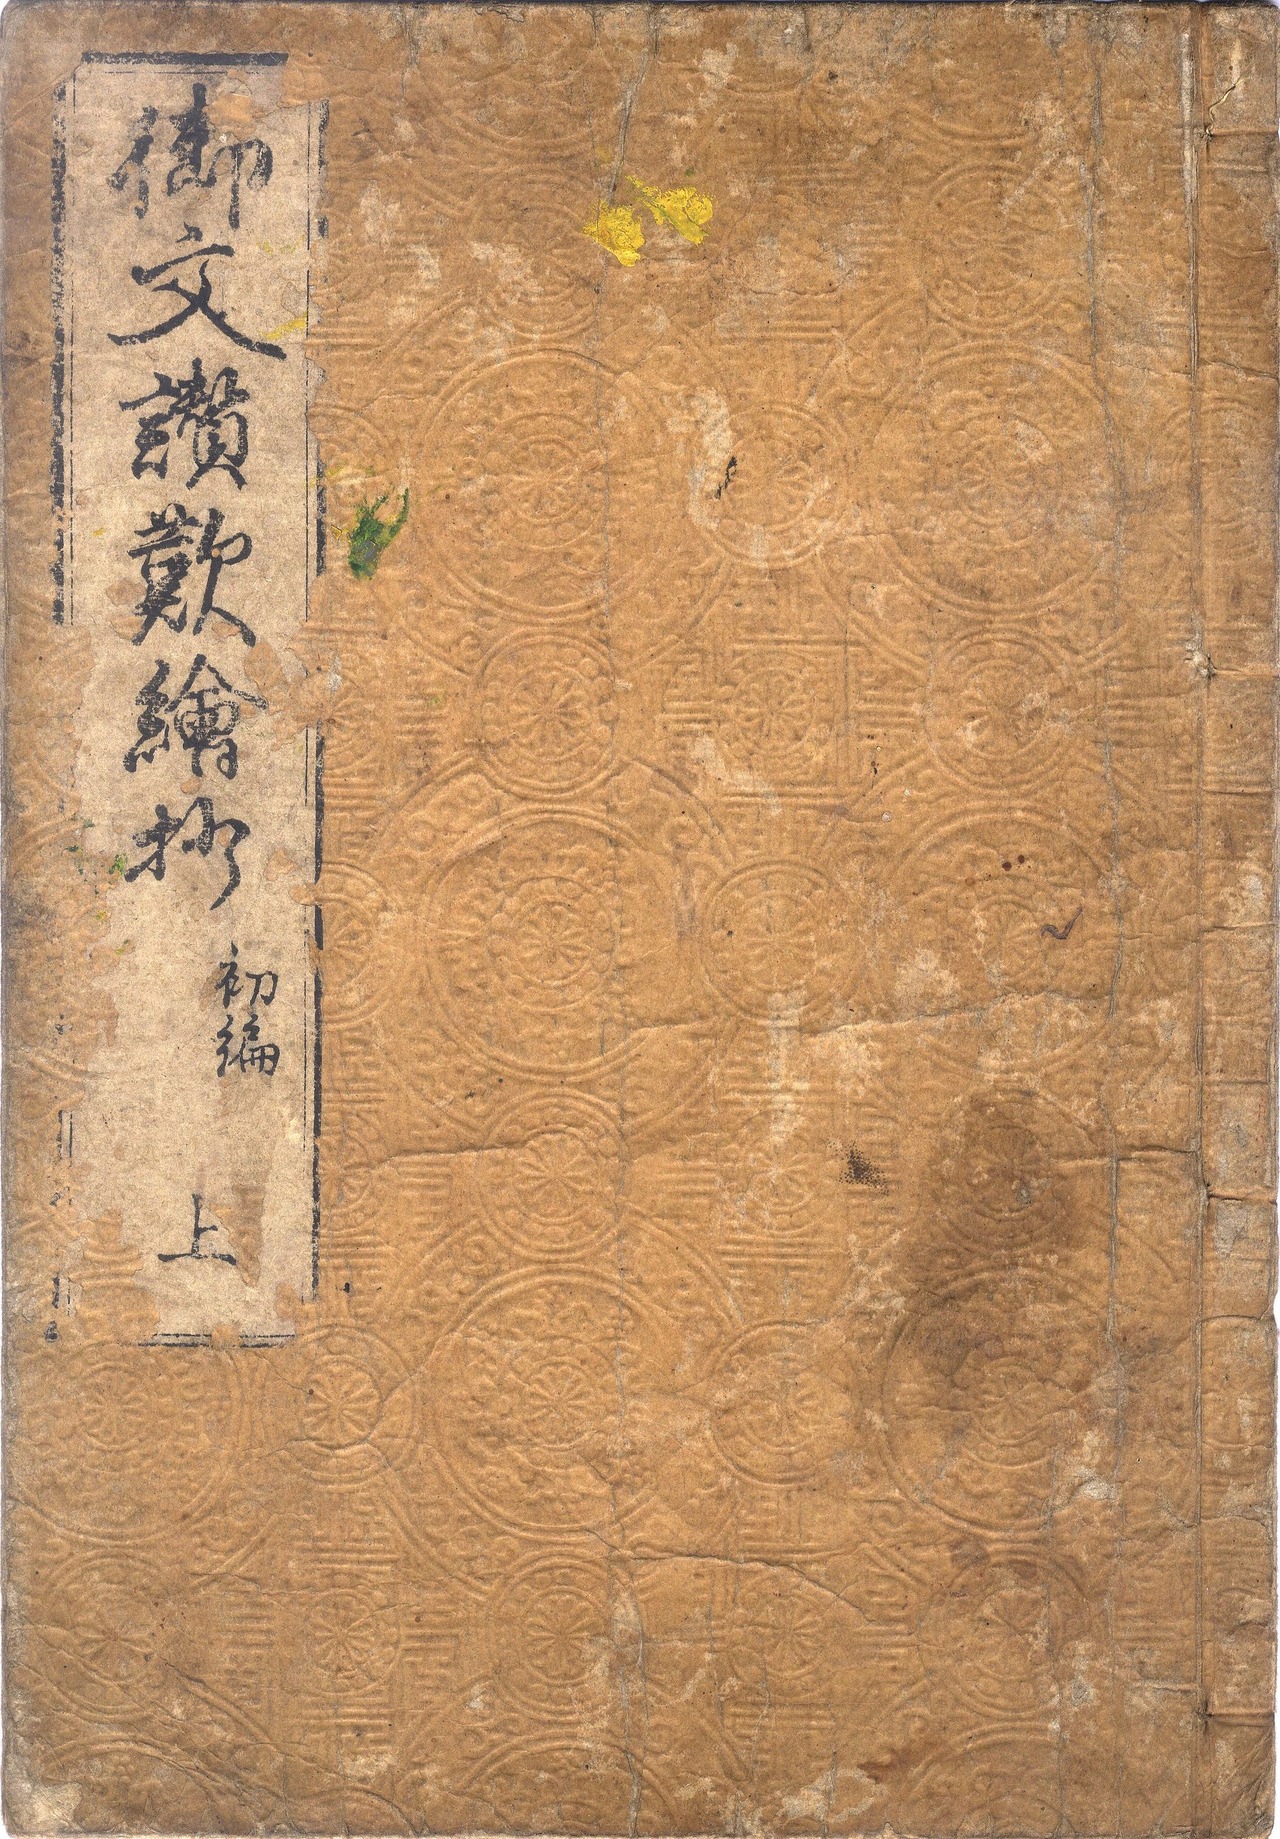 御文讃歎繪抄
初編
上